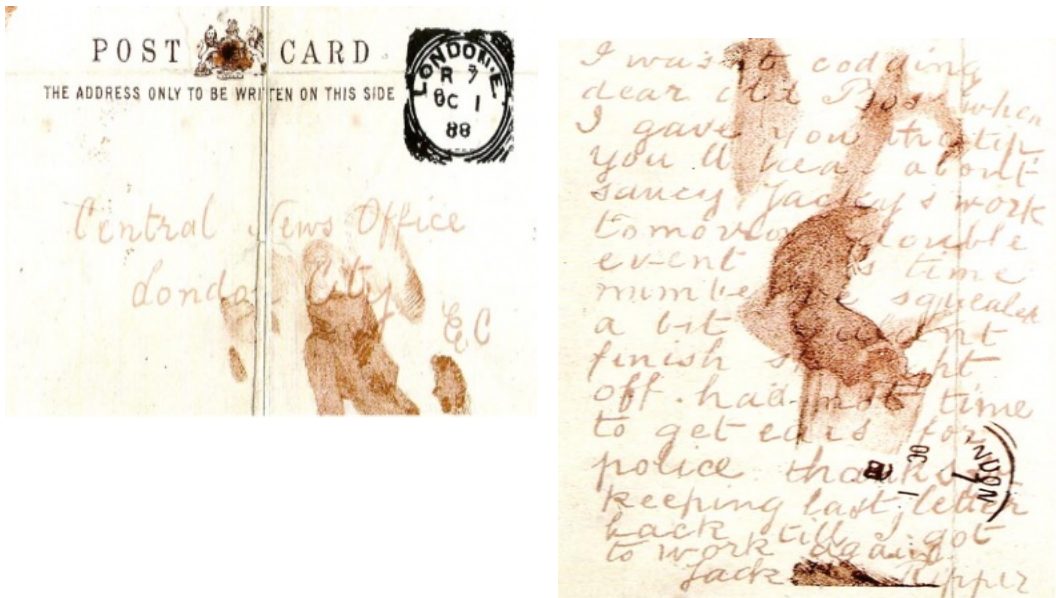 POST CARD
THE ADDRESS ONLY TO BE WRITTEN ON THIS SIDE
LONDON.E.
R 7
OC 1
88
Central News Office
London City
E.C
I was not codding
dear old Boss when
I gave you the tip
you'll hear about
saucy Jacky s work
tomorrow double
event time
number squealed
a bit
finish
off. had not time
to get ears for
police thanks
keeping last letter
back till I got
to work again.
Jack Ripper
LONDON
OC
1